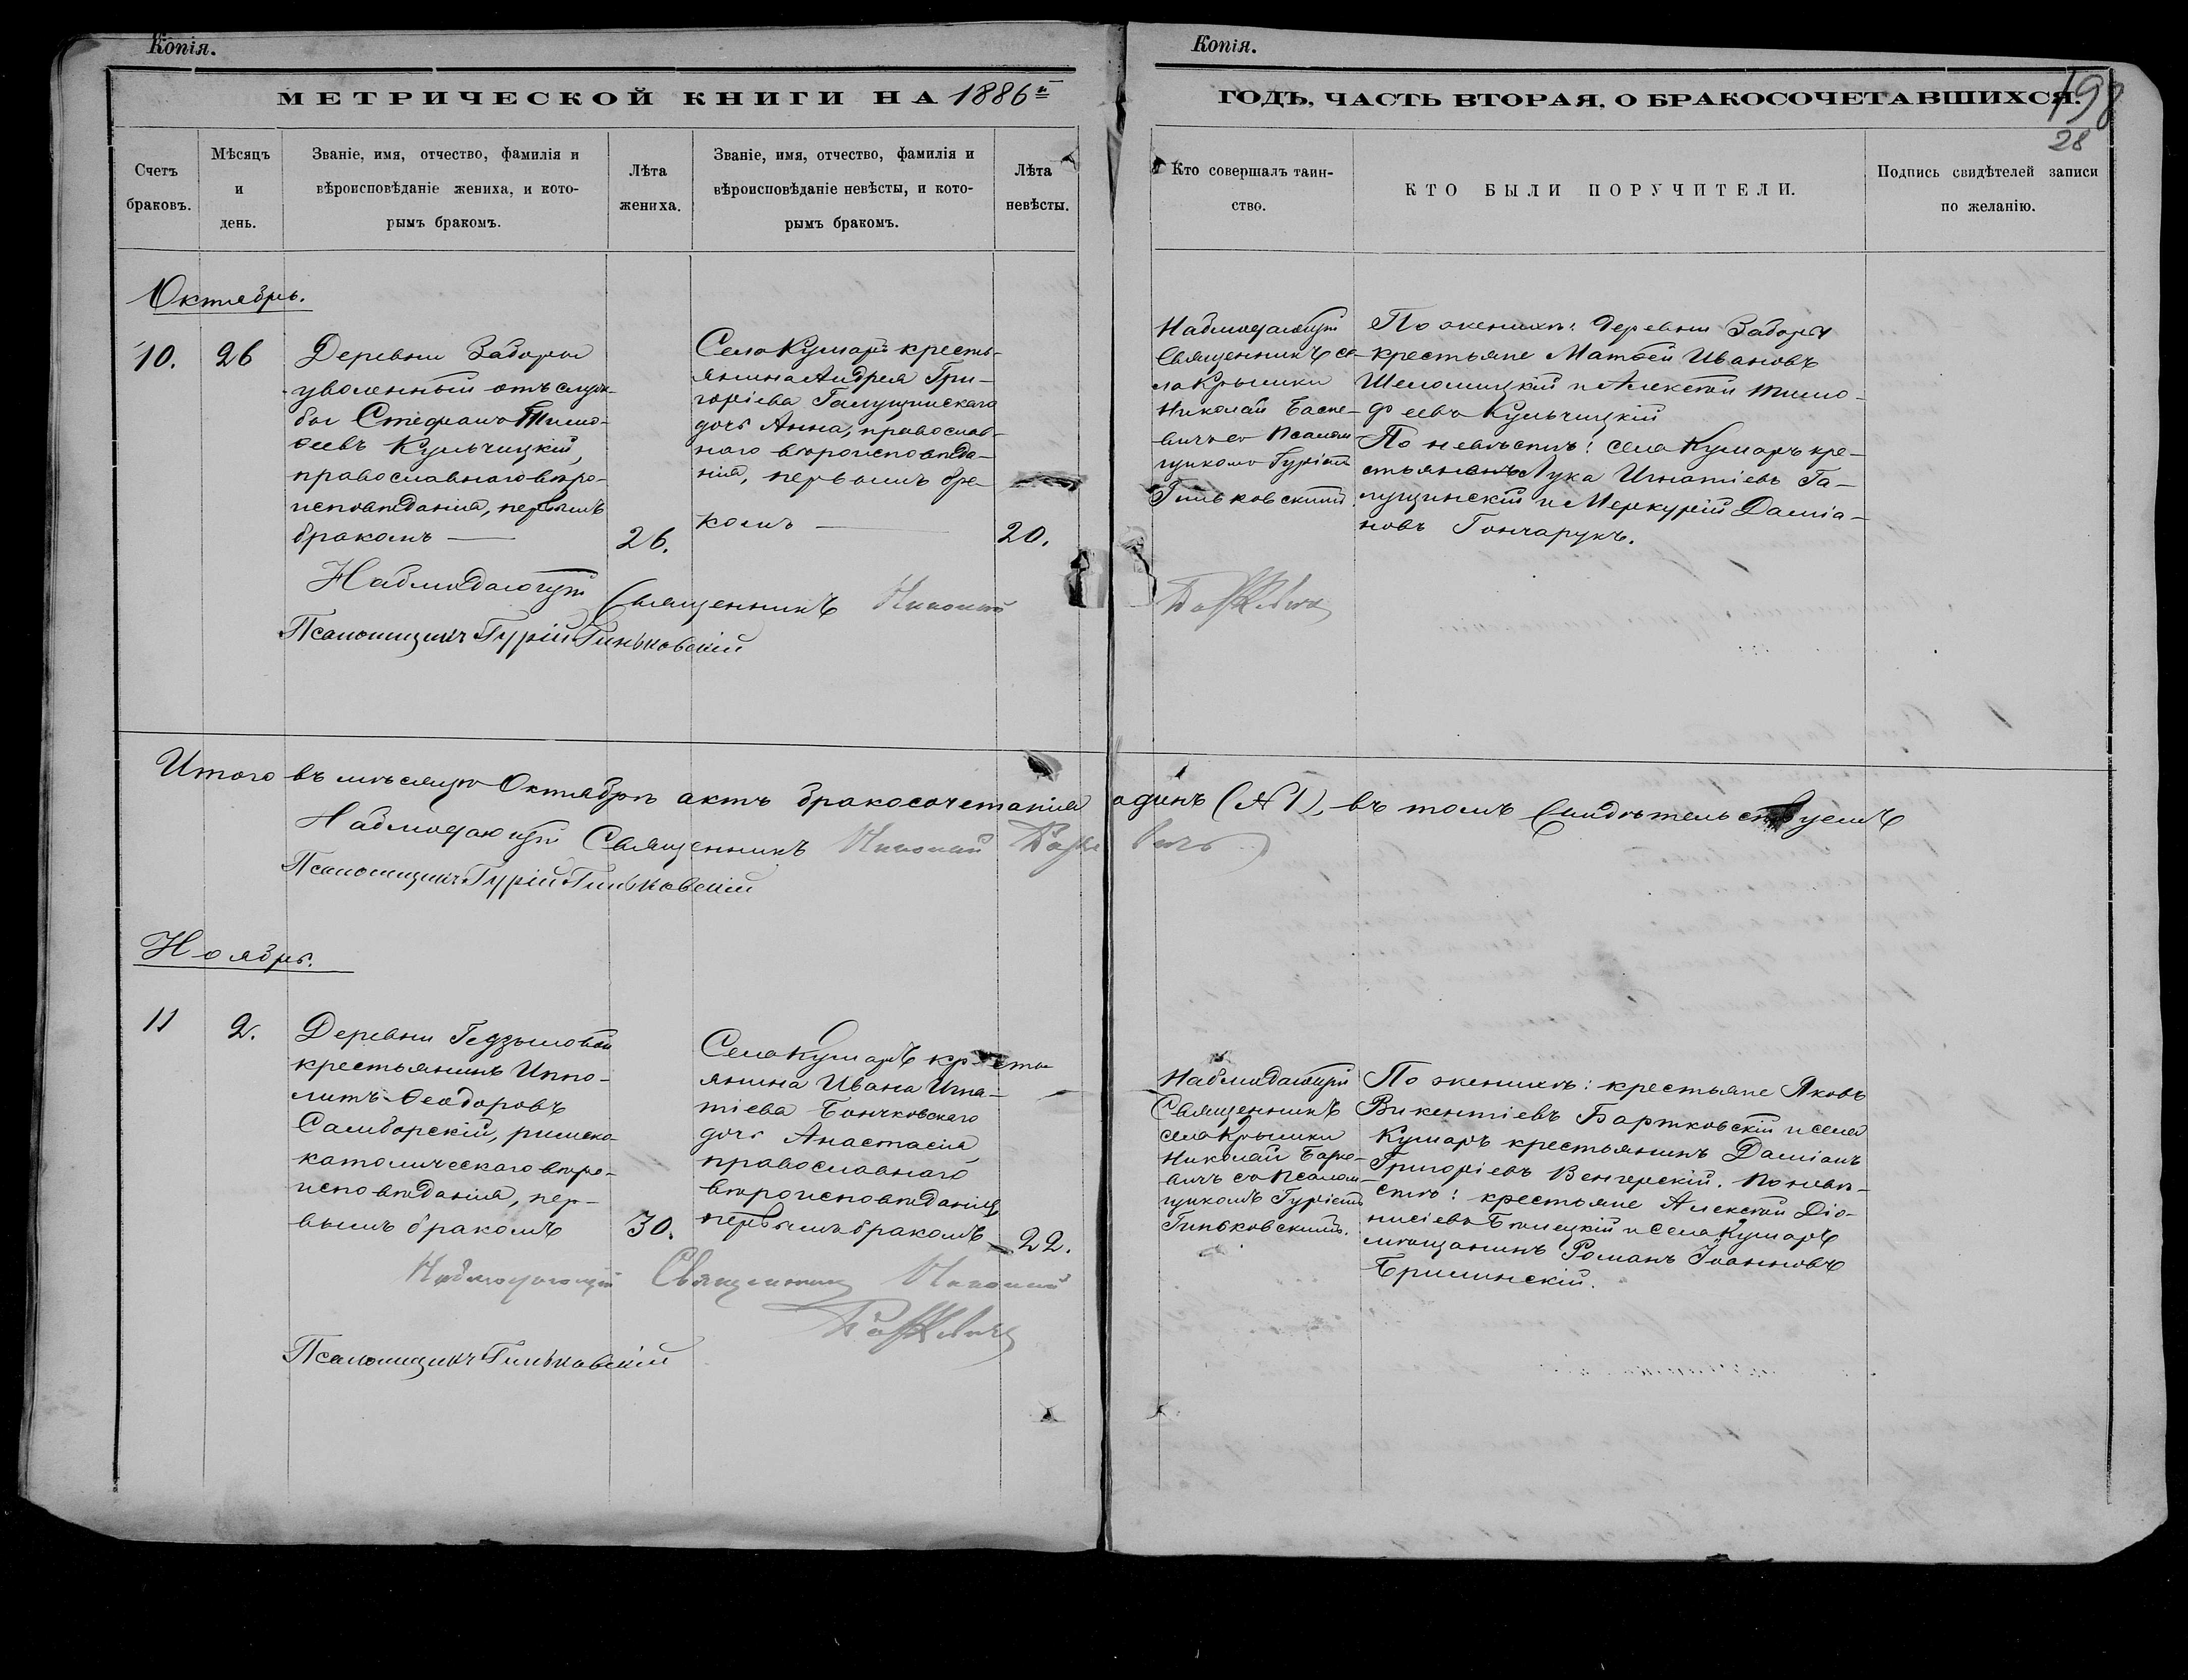 Копія.
МЕТРИЧЕСКОЙ КНИГИ НА 1886й
Счетъ
браковъ.
Мѣсяцъ
и
день.
Званіе, имя, отчество, фамилія и
вѣроисповѣданіе жениха, и кото-
рымъ бракомъ.
Лѣта
жениха.
Званіе, имя, отчество, фамилія и
вѣроисповѣданіе невѣсты, и кото-
рымъ бракомъ.
Лѣта
невѣсты.
Копія.
ГОДЪ, ЧАСТЬ ВТОРАЯ, О БРАКОСОЧЕТАВШИХСЯ.
198
28
Кто совершалъ таин-
ство.
КТО БЫЛИ ПОРУЧИТЕЛИ.
Подпись свидѣтелей записи
по желанію.
Октябрь.
10.
26
Деревни Заборы
уволенный отъ служ-
бы Стефанъ Тимо-
ѳеевъ Кульчицкій,
православнаго вѣро-
исповѣданія, первымъ
бракомъ
26.
Села Кумаръ кресть-
янина Андрея Гри-
горіева Галущинскаго
дочь Анна, православ-
наго вѣроисповѣда-
нія, первымъ бра-
комъ
20.
Наблюдающій
Священникъ се-
ла Крымки
Николай
вичъ со Псалом-
щикомъ Гуріемъ
Гиньковскимъ.
По женихѣ: деревни Заборы
крестьяне Матѳей Ивановъ
Шеломицкій и Алексѣй Тимо-
феевъ Кульчицкій
По невѣстѣ: села Кумаръ кре-
стьянинъ Лука Игнатіевъ Га-
лущинскій и Меркурій Даміа-
новъ Гончарукъ.
Наблюдающій Священникъ Николай
Псаломщикъ Гурій Гиньковскій
Итого въ мѣсяцѣ Октябрѣ актъ бракосочетанія одинъ (№ 1), въ томъ Свидѣтельствуемъ
Наблюдающій Священникъ Николай
Псаломщикъ Гурій Гиньковскій
Ноябрь.
11
2.
Деревни
крестьянинъ Иппо-
литъ Ѳеодоровъ
Самборскій, римско-
католическаго вѣро-
исповѣданія, пер-
вымъ бракомъ
30.
Села Кумаръ кресть
янина Ивана Игна-
тіева Бончковскаго
дочь Анастасія,
православнаго
вѣроисповѣданія,
первымъ бракомъ
22.
Наблюдающій
Священникъ
села Крымки
Николай
вичъ со Псалом-
щикомъ Гуріемъ
Гиньковскимъ.
По женихѣ: крестьяне Яковъ
Викентіевъ Бартковскій и села
Кумаръ крестьянинъ Даміанъ
Григоріевъ Венгерскій. По невѣ-
стѣ: крестьяне Алексѣй Діо-
нисіевъ Бѣлецкій и села Кумаръ
мѣщанинъ Романъ Іоанновъ
Наблюдающій Священникъ Николай
Псаломщикъ Гиньковскій